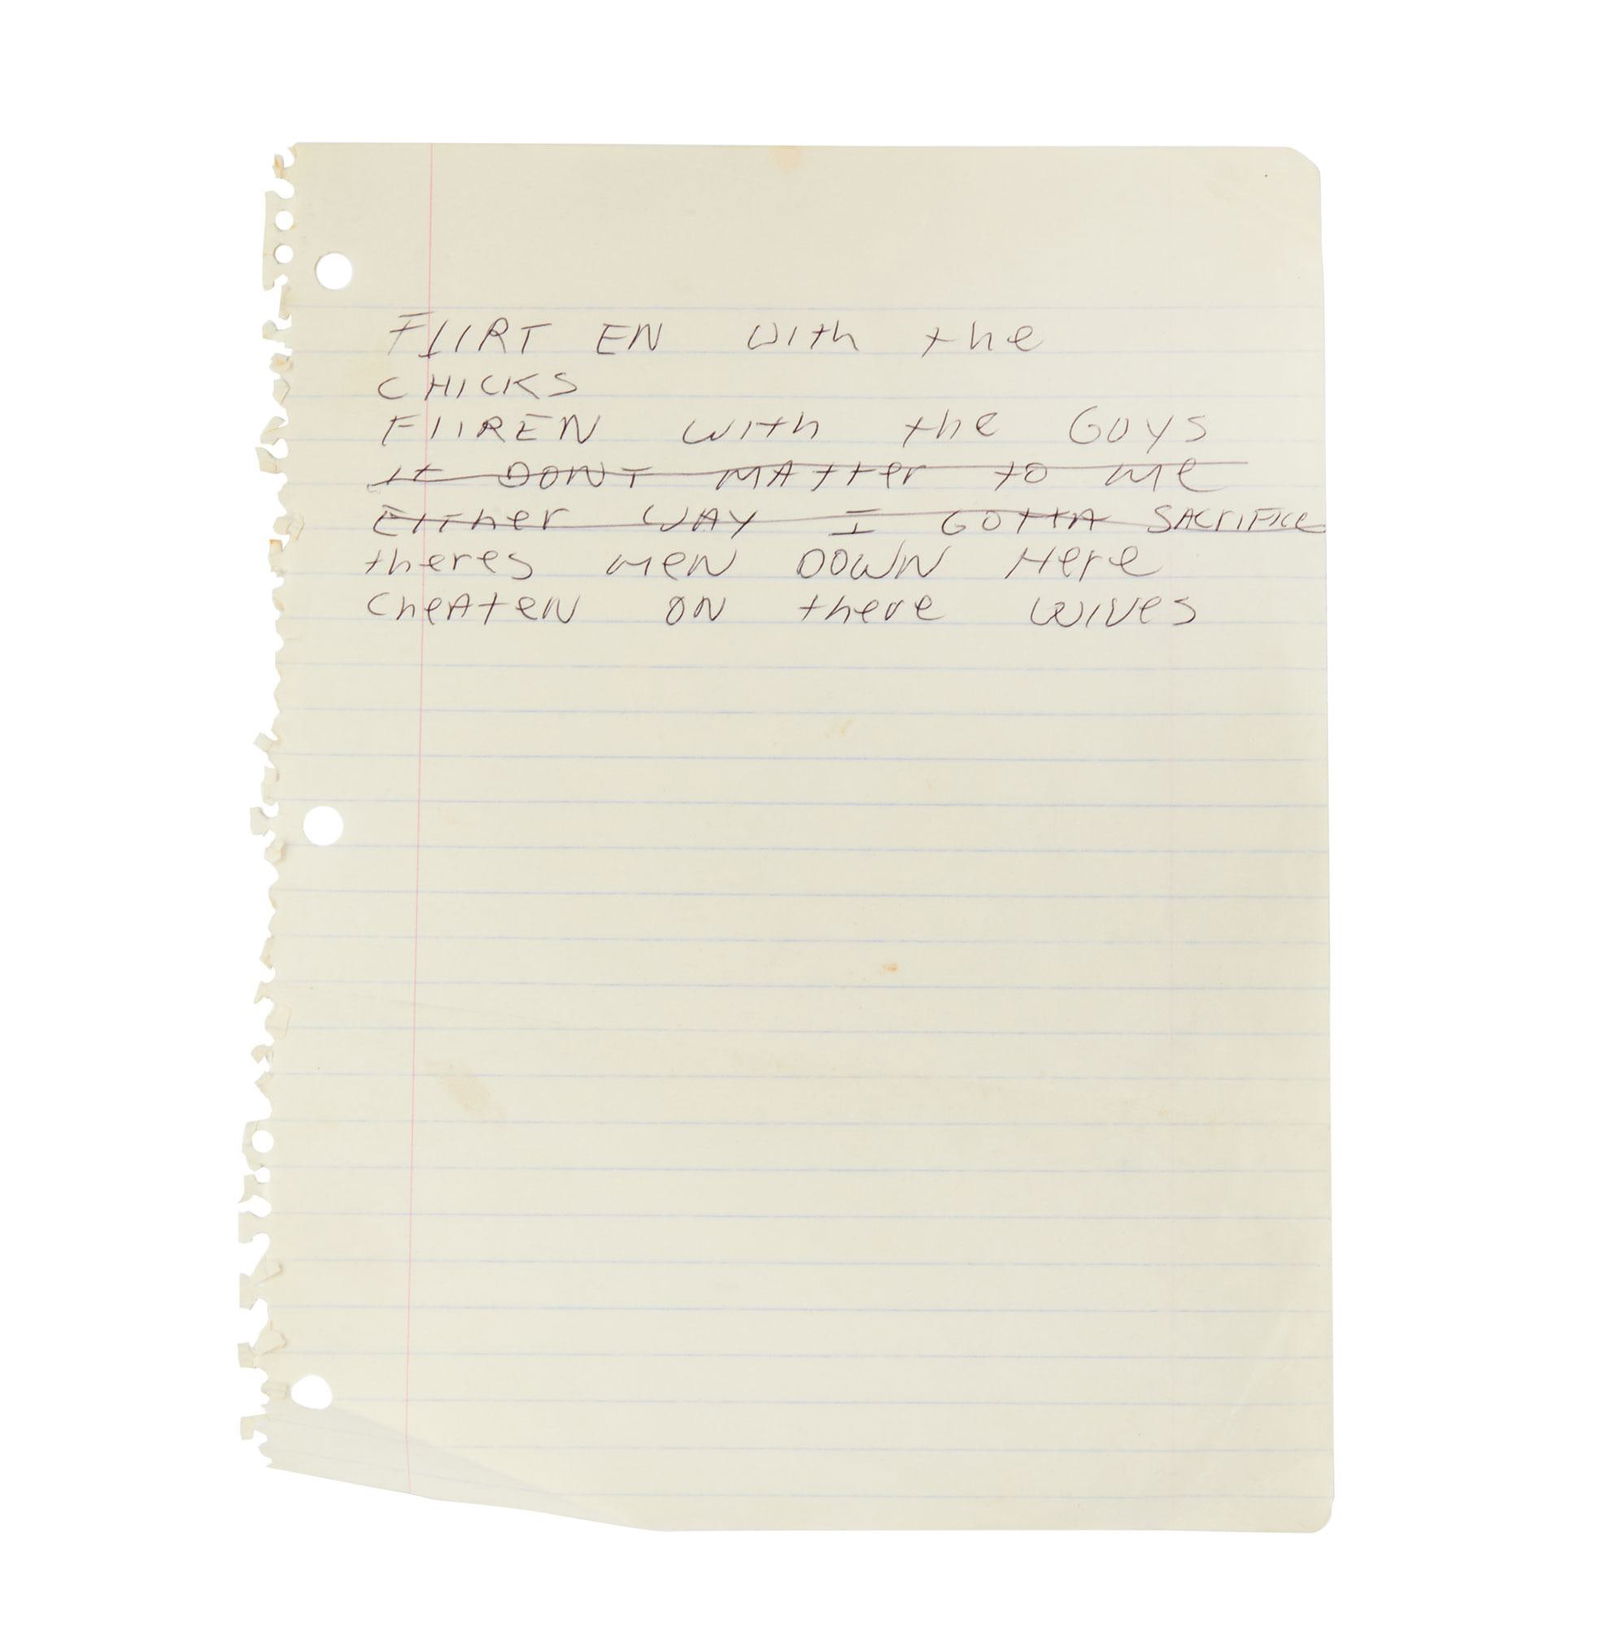 FlIRT EN with the
CHICKS
FlIREN with the GUYS
It DONT MAtter to me
EIther WAY I GOttA SACrIFICe
theres MeN DOWN Here
CheAteN ON there WIVes